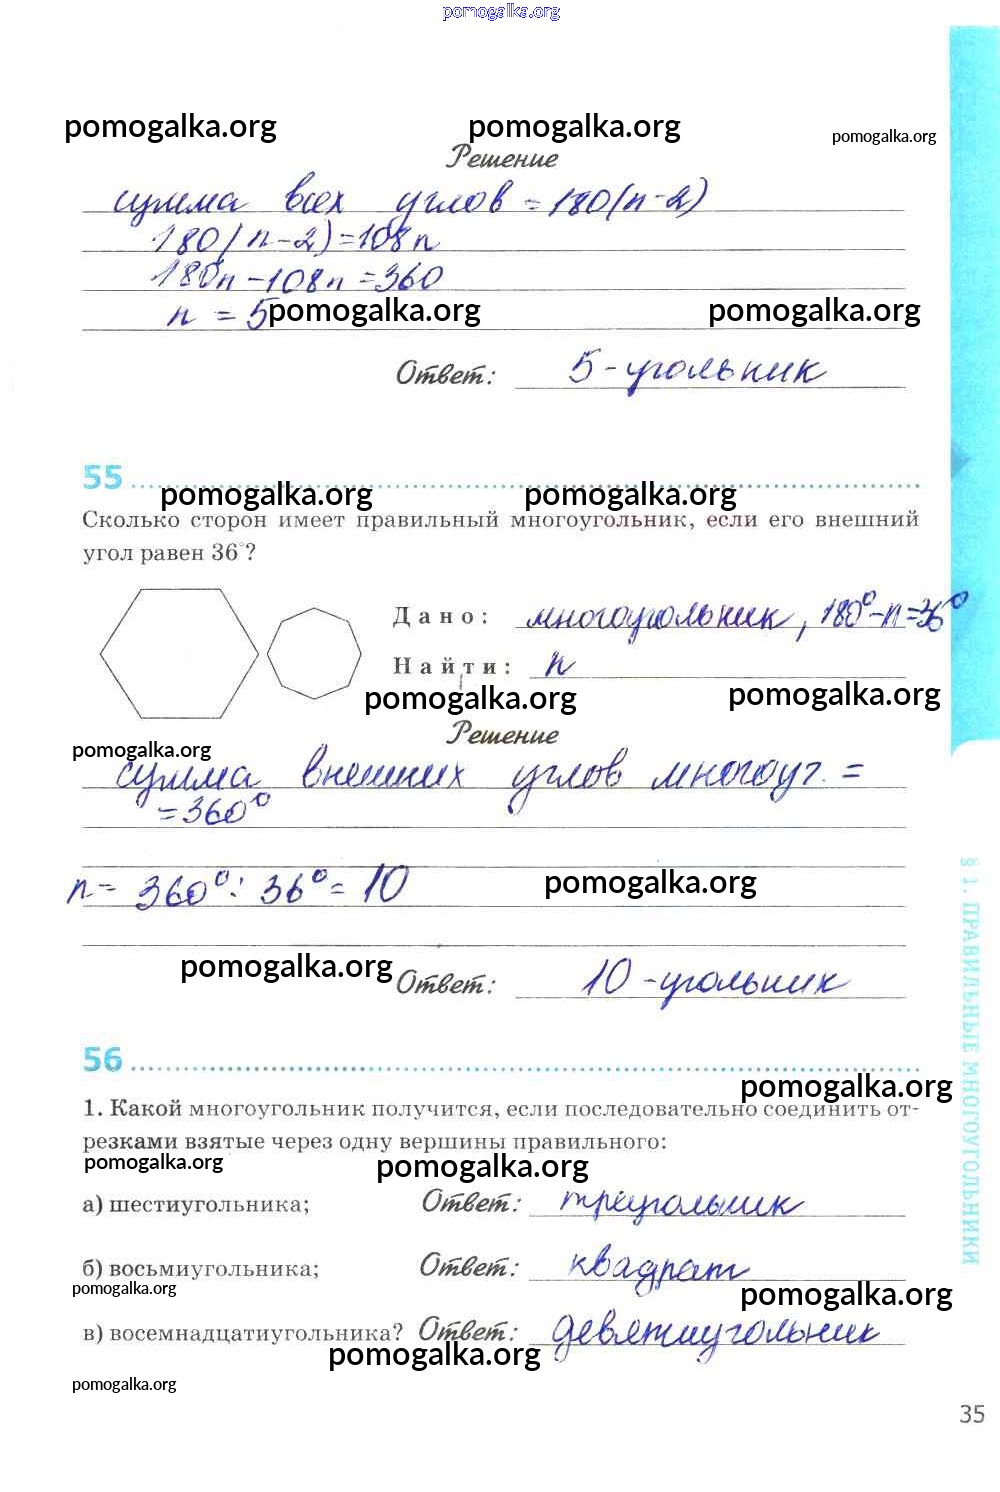 pomogalka.org
pomogalka.org pomogalka.org pomogalka.org
Решение
сумма всех углов = 180(n-2)
180(n-2)=108n
180n-108n=360
n = 5
pomogalka.org pomogalka.org
Ответ: 5-угольник
55
pomogalka.org pomogalka.org
Сколько сторон имеет правильный многоугольник, если его внешний
угол равен 36°?
Дано: многоугольник, 180°-n=36°
Найти: n
pomogalka.org pomogalka.org
Решение
pomogalka.org
сумма внешних углов многоуг. =
=360°
n= 360°: 36°= 10
pomogalka.org
pomogalka.org
Ответ: 10-угольник
56
pomogalka.org
1. Какой многоугольник получится, если последовательно соединить от-
резками взятые через одну вершины правильного:
pomogalka.org pomogalka.org
а) шестиугольника; Ответ: треугольник
б) восьмиугольника; Ответ: квадрат
pomogalka.org pomogalka.org
в) восемнадцатиугольника? Ответ: девятиугольник
pomogalka.org
pomogalka.org
§ 1. ПРАВИЛЬНЫЕ МНОГОУГОЛЬНИКИ
35